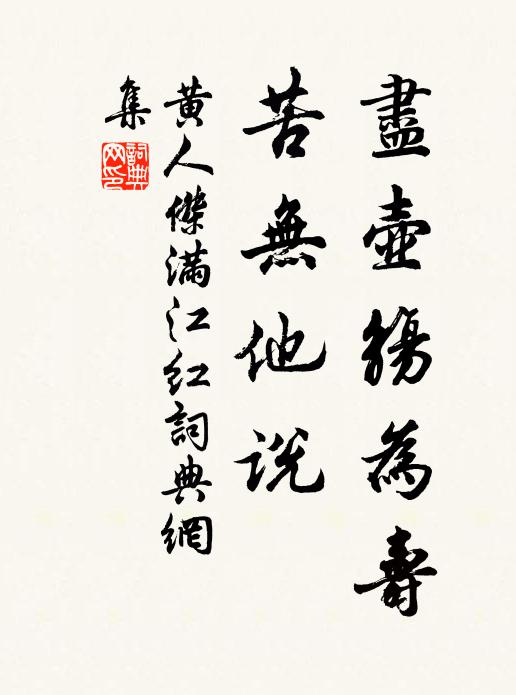 盡壺觴為壽
苦無他說
黃人傑滿江红詞典網
集
詞典网印